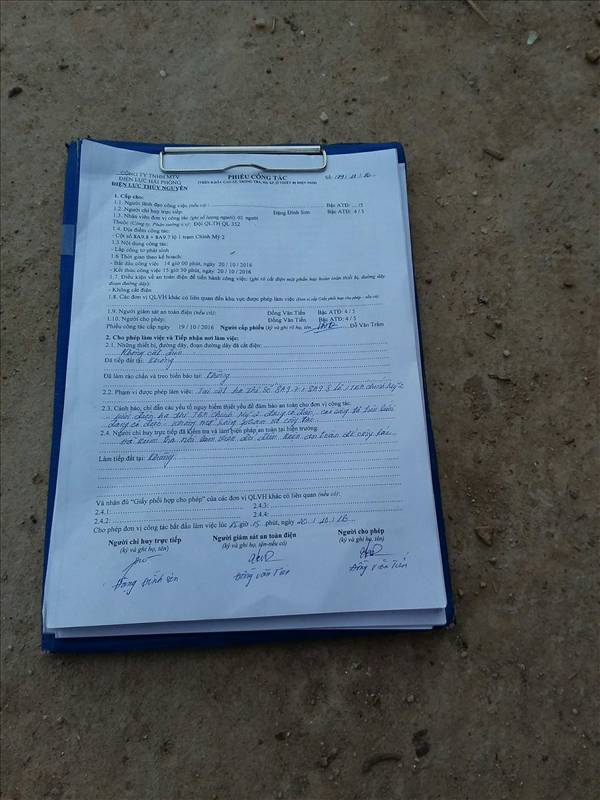 CÔNG TY TNHH MTV
ĐIỆN LỰC HẢI PHÒNG
ĐIỆN LỰC THỦY NGUYÊN
PHIẾU CÔNG TÁC
Số:
(TRÊN ĐZ/KH CAO ÁP, TRUNG, HẠ ÁP, Ở THIẾT BỊ ĐIỆN
1. Cấp cho:
1.1. Người lãnh đạo công việc (nếu có): Bậc ATĐ: .../5
1.2. Người chỉ huy trực tiếp: Đặng Đình Sơn Bậc ATĐ: 4 / 5
1.3. Nhân viên đơn vị công tác (ghi số lượng người): 02 người
Thuộc (Công ty, Phân xưởng v.v): Đội QLTH QL 352
1.4. Địa điểm công tác:
- Cột số 8A9.8 + 8A9.7 lộ 1 trạm Chinh Mỹ 2
1.5 Nội dung công tác:
- Lắp công tơ phát sinh
1.6 Thời gian theo kế hoạch:
- Bắt đầu công việc 14 giờ 00 phút, ngày 20 / 10 / 2016
- Kết thúc công việc 15 giờ 30 phút, ngày 20 / 10 / 2016
1.7. Điều kiện về an toàn điện để tiến hành công việc: (ghi rõ cắt điện một phần hay hoàn toàn thiết bị, đường dây
đoạn đường dây):
- Không cắt điện
1.8. Các đơn vị QLVH khác có liên quan đến khu vực được phép làm việc
1.9. Người giám sát an toàn điện (nếu có): Đồng Văn Tiến Bậc ATĐ: 4 / 5
1.10. Người cho phép: Đồng Văn Tiến Bậc ATĐ: 4 / 5
Phiếu công tác cấp ngày 19 / 10 / 2016 Người cấp phiếu (ký và ghi rõ họ, tên) Đỗ Văn Trầm
2. Cho phép làm việc và Tiếp nhận nơi làm việc:
2.1. Những thiết bị, đường dây, đoạn đường dây đã cắt điện:
Không cắt điện
Đã tiếp đất tại: không
Đã làm rào chắn và treo biển báo tại: không
2.2. Phạm vi được phép làm việc: Tại cột hạ thế số 8A9.7 + 8A9.8 lộ 1 TBA Chinh Mỹ 2
2.3. Cảnh báo, chỉ dẫn các yếu tố nguy hiểm thiết yếu để đảm bảo an toàn cho đơn vị công tác.
2.4. Người chỉ huy trực tiếp đã kiểm tra và làm biện pháp an toàn tại hiện trường.
Làm tiếp đất tại: không
Và nhận đủ "Giấy phối hợp cho phép" của các đơn vị QLVH khác có liên quan (nếu có):
2.4.1: 2.4.3:
2.4.2: 2.4.4:
Cho phép đơn vị công tác bắt đầu làm việc lúc 15 giờ 15 phút, ngày 20 / 10 / 16
Người chỉ huy trực tiếp Người giám sát an toàn điện Người cho phép
(ký và ghi họ, tên) (ký và ghi họ, tên-nếu có) (ký và ghi họ, tên)
Đặng Đình Sơn Đồng Văn Tiến Đồng Văn Tiến